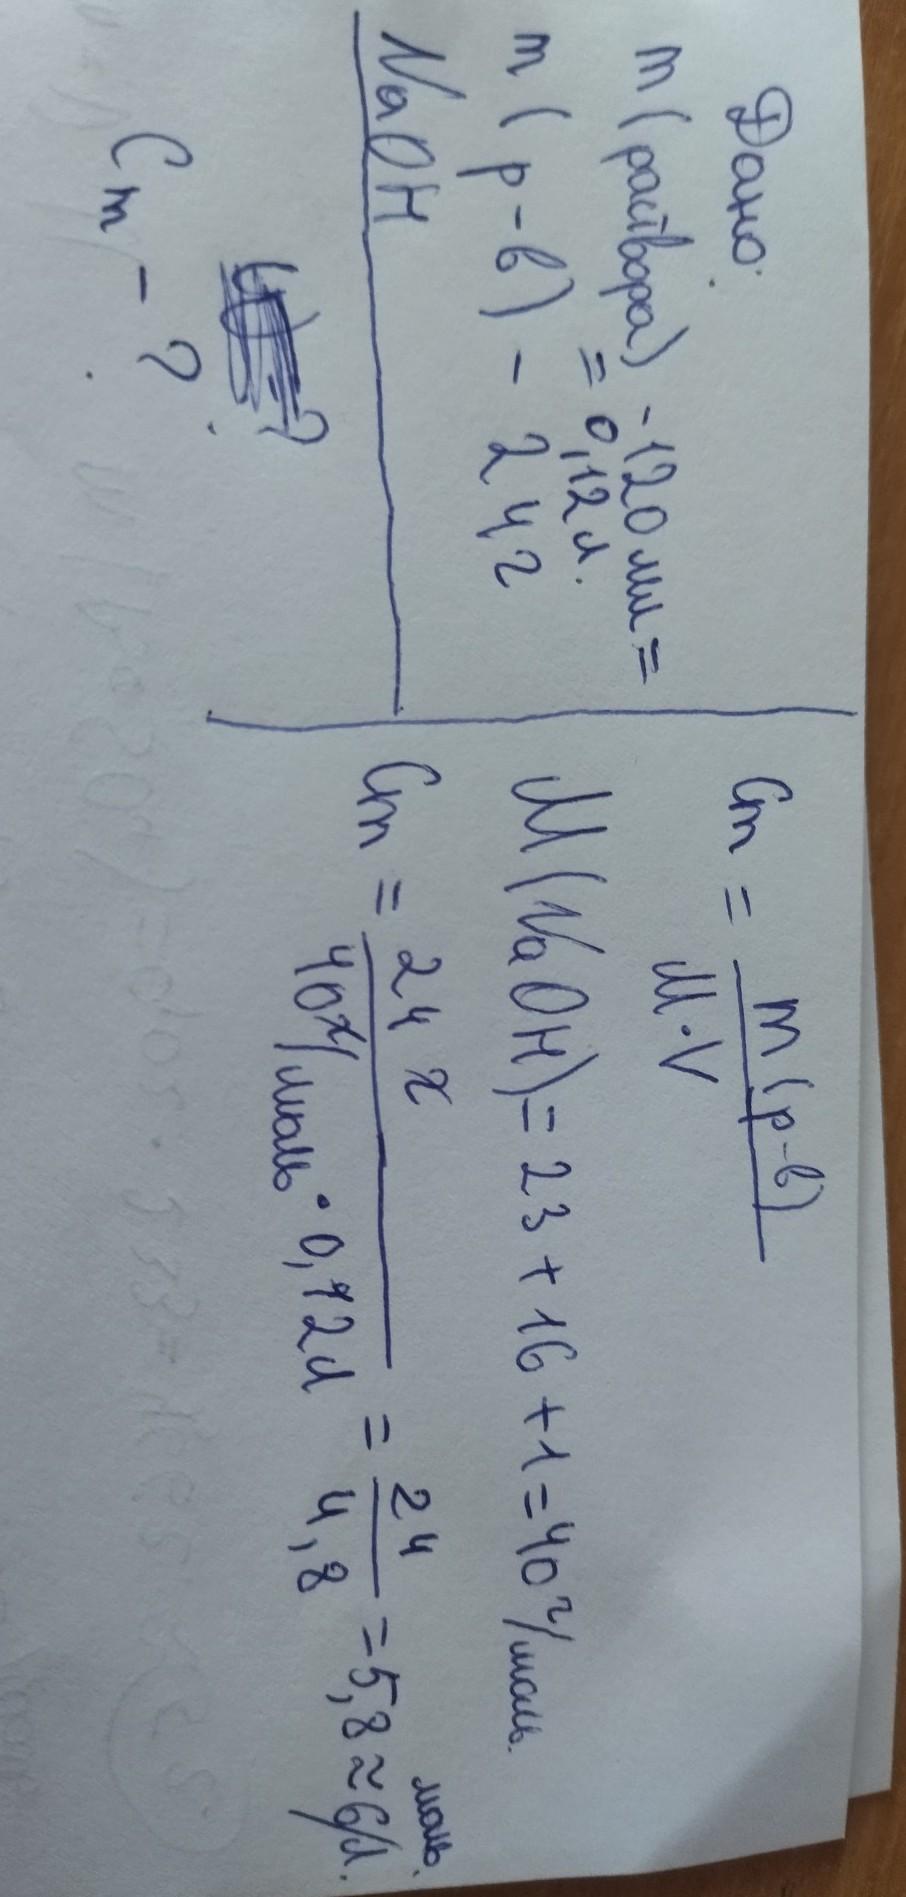 Дано:
m(раствора) - 120 мл =
= 0,12 л.
m(р-в) - 24 г
NaOH
?
Cm - ?
Cm = m(р-в)
M·V
M(NaOH) = 23 + 16 + 1 = 40 г/моль.
Cm = 24 г / 40 г/моль · 0,12 л = 24 / 4,8 = 5,8 ≈ 6 моль/л.